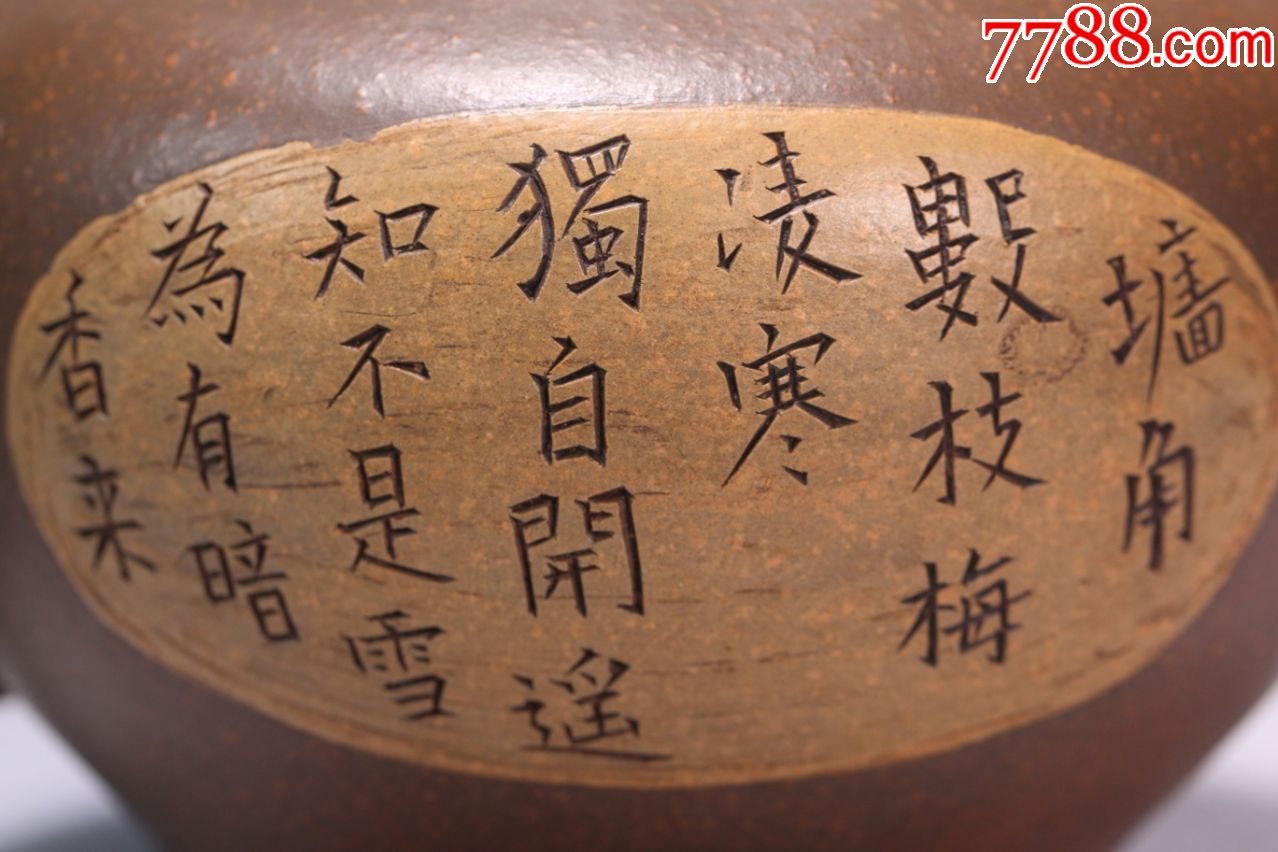 墙角
數枝梅
凌寒
獨自開遥
知不是雪
為有暗
香来
7788.com